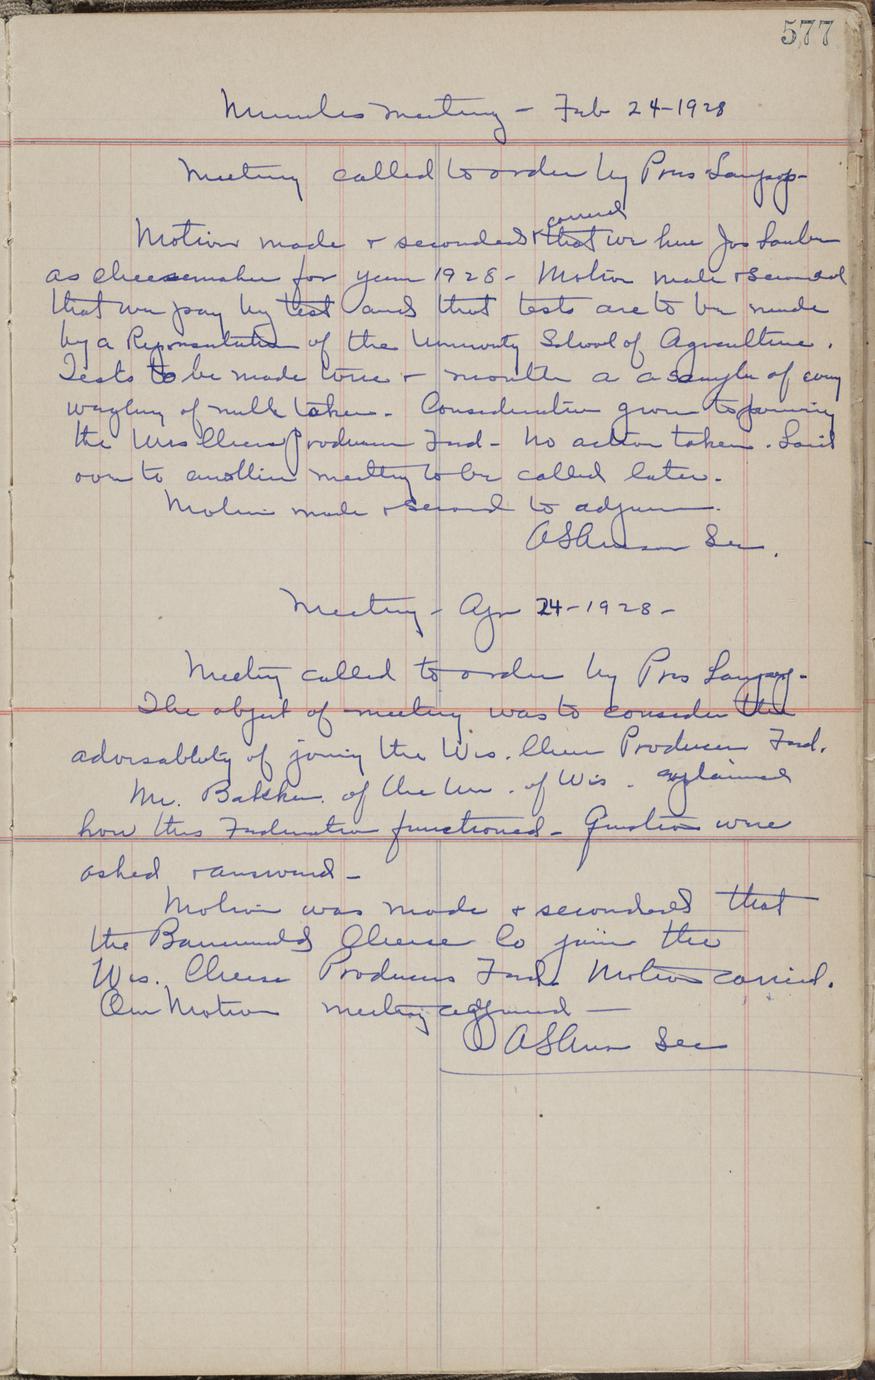 577
Minutes meeting - Feb 24-1928
Meeting called to order by Pres
carried
Motion made + seconded + that we hire Jos Lauber
as cheesemaker for year 1928 - Motion made + second
that we pay by test and that tests are to be made
by a Representative of the University School of Agriculture.
Tests to be made twice a month a a sample of every
weighing of milk taken. Consideration given to joining
the Wis Cheese Producers Fed - No action taken. Laid
over to another meeting to be called later.
Motion made + second to adjourn.
Sec.
Meeting - Apr 24-1928-
Meeting called to order by Pres
The object of meeting was to consider the
advisability of joining the Wis. Cheese Producers Fed.
Mr. Bakken of the Un. of Wis. explained
how this Federation functioned - Questions were
asked + answered -
Motion was made + seconded that
the Cheese Co join the
Wis. Cheese Producers Fed. Motion carried.
On Motion meeting adjourned —
Sec